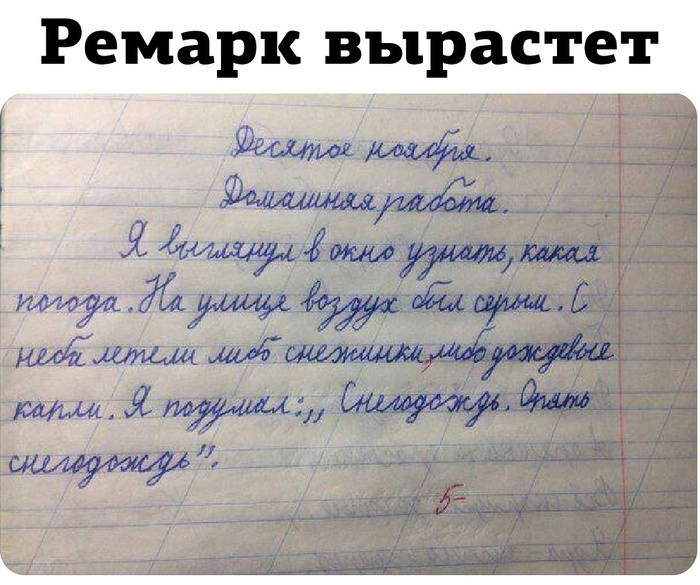 Ремарк вырастет
Десятое ноября.
Домашняя работа.
Я выглянул в окно узнать, какая
погода. На улице воздух был серым. С
неба летели либо снежинки, либо дождевые
капли. Я подумал: ,, Снегодождь. Опять
снегодождь".
5-